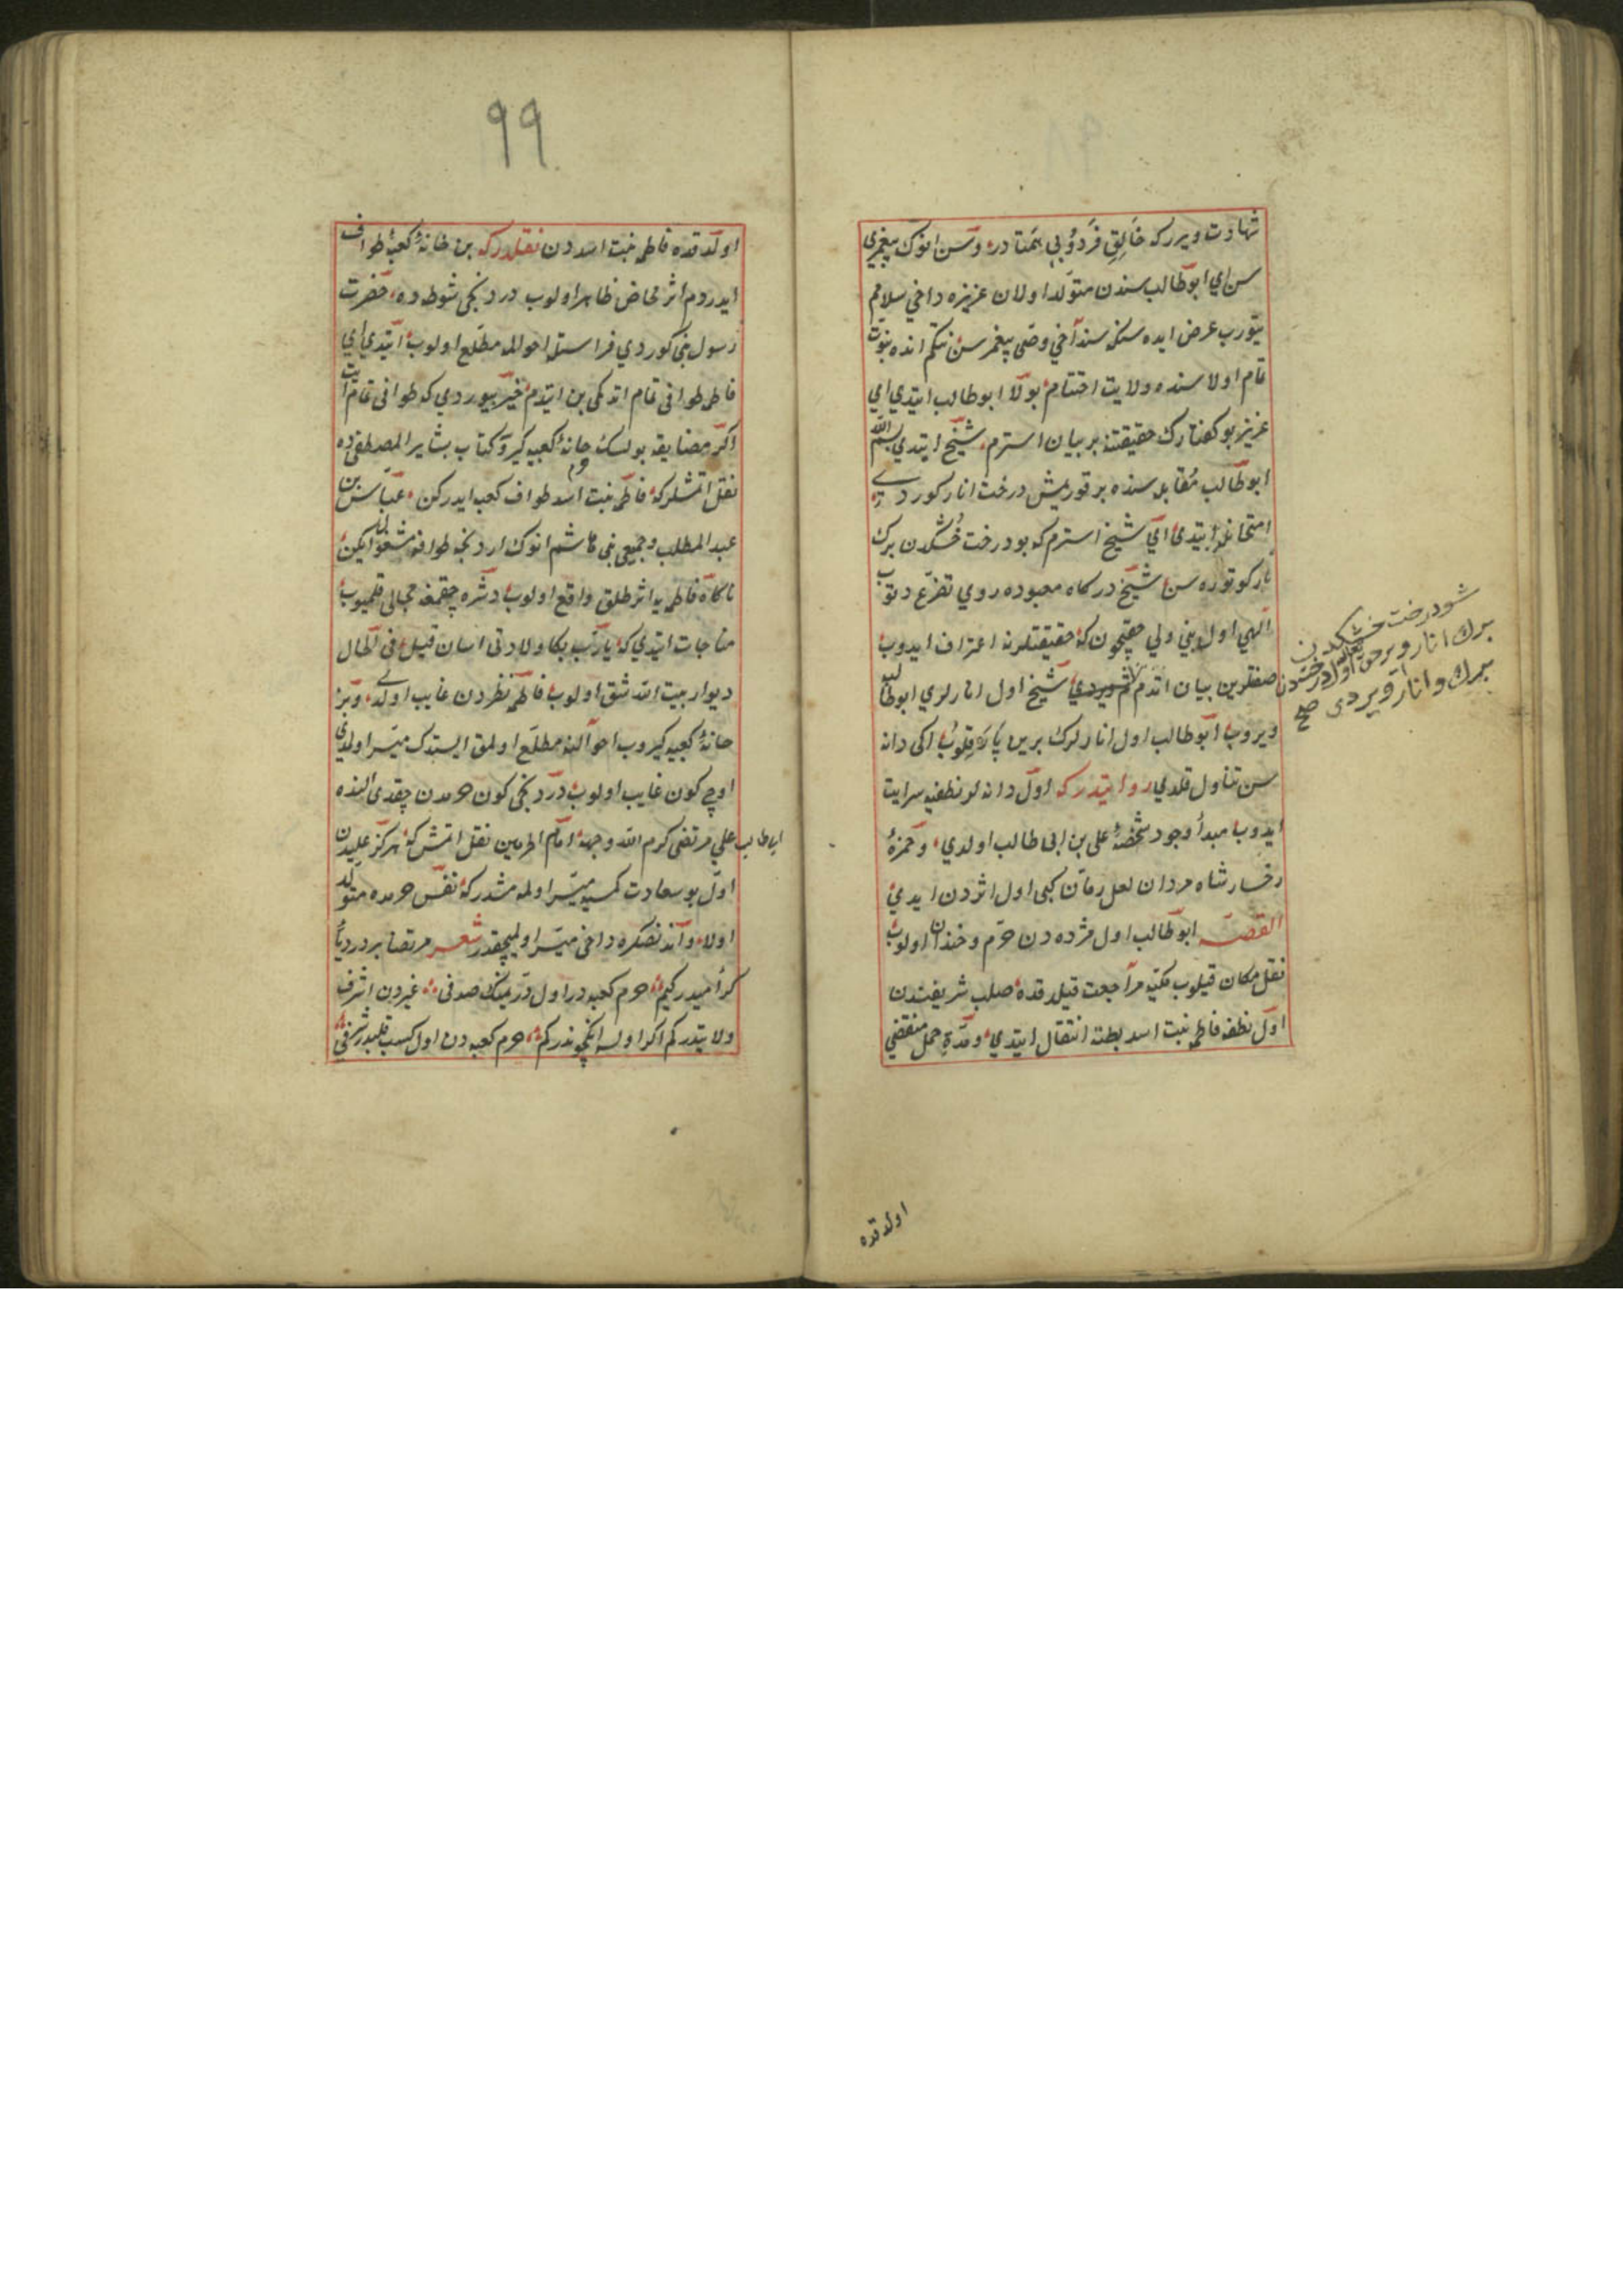 شهادت ويرركه خالق فرد و بی همتادر و سن انوک پيغمبری
سن ای ابوطالب سندن متولد اولان عزيزه داخی سلامم
يتورب عرض ايده سنكه سنداخی وصی پيغمبرسن نتكم انده نبوت
تمام اولا سنده ولايت اختتام بولا ابوطالب ايتدی ای
عزيز بو كفتارك حقيقتنه بر بيان استرم شيخ ايتدی بسم الله
ابوطالب مقابله سنده بر قوريمش درخت انار كوردی
امتحانله ايتدی ای شيخ استرم كه بو درخت خشكدن برك
بار كوتوره سن شيخ دركاه معبوده روی تضرع دتوب
الهی اول نبی ولی حقيچون كه حقيقتلرنه اعتراف ايدوب
صفتلرين بيان اتدم شيخ اول انارلری ابوطالبه
ويروب ابوطالب اول انارلرك برين پاره قلوب اكی دانه
سن تناول قلدی روايتدركه اول دانه لر نطفيه سرايت
ايدوب مبدأ وجود شخصه علی بن ابی طالب اولدی و حمزۀ
رخسار شاه مردان لعل رمان كبی اول اثردن ايدی
القصه ابوطالب اول مژده دن خرم و خندان اولوب
نقل مكان قيلوب مكيه مراجعت قيلدقده صلب شريفندن
اول نطفه فاطمه بنت اسد بطنه انتقال ايتدی و مدة حمل منقضی
شو درخت خشكدن
برك انار ويرحق تعالی اول درختدن
برك و انار ويردی صح
اولدقده
٩٩
اولدقده فاطمه بنت اسددن نقلدركه بن خانۀ كعبۀ طواف
ايدردم اثر مخاض ظاهر اولوب دردنجی شوطده حضرت
رسول بنی كوردی فراستله احوالمه مطلع اولوب ايتدی ای
فاطمه طوافی تمام اتدكمی بن ايتدم خير بيوردی كه طوافی تمام ايت
اكر مضايقه بولسك خانۀ كعبيه كير و كتاب بشاير المصطفی ده
نقل اتمشلركه فاطمه بنت اسد طواف كعبه ايدركن عباس بن
عبد المطلب و جميع بنی هاشم انوك اردنجه طوافه مشغول ايكن
ناكاه فاطمه يه اثر طلق واقع اولوب دشره چقمغه مجالی قلميوب
مناجات ايتدی كه يارب بكا ولادتی اسان قيل فی الحال
ديوار بيت الله شق اولوب فاطمه نظردن غايب اولدی و بز
خانۀ كعبيه كيروب احوالنه مطلع اولمق ايستدك ميسر اولمدی
اوچ كون غايب اولوب دردنجی كون حرمدن چقدی النده
علی مرتضی كرم الله وجهه امام الحرمين نقل اتمش كه هركز عليدن
ابی طالب
اول بو سعادت كمسيه ميسر اولمه مشدركه نفس حرمده متولد
اولا و اندنصكره داخی ميسر اوليچقدر شعر مرتضا بر در دريای
كرامیدر كيم حرم كعبه در اول در يمينك صدفی غيردن اشرف
ولا يتدركم اكر اولسه انكچوندركم حرم كعبه دن اول كسب قلبدر شرفی